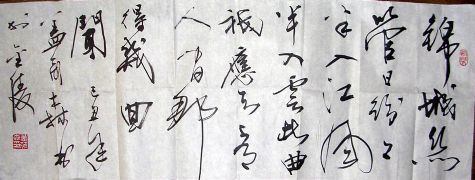 錦城絲
管日紛々
半入江風
半入雲此曲
祇應天上有
人间那
得幾回
聞
己丑
書
於金陵